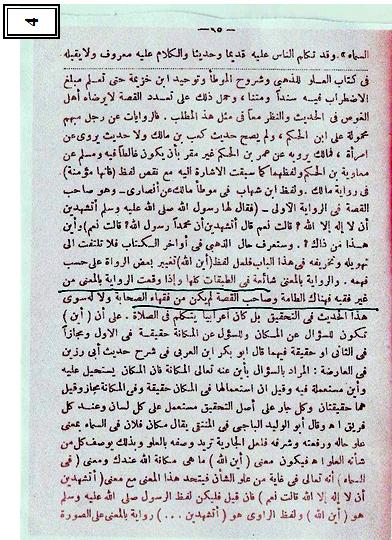 4
— ٩٥ —
السماء». وقد تكلم الناس عليه قديما وحديثا والكلام عليه معروف ولا يقبله
فى كتاب العلو للذهبى وشروح الموطأ وتوحيد ابن خزيمة حتى تعلم مبلغ
الاضطراب فيه سندا ومتنا، وحمل ذلك على تعدد القصة لا يرضاه أهل
الغوص فى الحديث والنظر معا فى مثل هذا المطلب. فالروايات عن رجل مبهم
محمولة على ابن الحكم، ولم يصح حديث كعب بن مالك ولا حديث يروى عن
امرأة، فمالك يرويه عن عمر بن الحكم غير مقر بأن يكون غالطا فيه ومسلم عن
معاوية بن الحكم ولفظهما كما سبقت الاشارة اليه مع نقص لفظ (فانها مؤمنة)
فى رواية مالك. ولفظ ابن شهاب فى موطأ مالك عن أنصارى - وهو صاحب
القصة فى الرواية الاولى - (فقال لها رسول الله صلى الله عليه وسلم أتشهدين
أن لا إله إلا الله؟ قالت نعم قال أتشهدين أن محمدا رسول الله؟ قالت نعم) وأين
هذا من ذاك؟. وستعرف حال الذهبى فى أواخر الكتاب فلا تلتفت الى
تهويله وتخريفه فى هذا الباب فلعل لفظ (أين الله) تغيير بعض الرواة على حسب
فهمه. والرواية بالمعنى شائعة فى الطبقات كلها وإذا وقعت الرواية بالمعنى من
غير فقيه فهناك الطامة وصاحب القصة لم يكن من فقهاء الصحابة ولا له سوى
هذا الحديث فى التحقيق بل كان اعرابيا يتكلم فى الصلاة. على أن (أين)
تكون للسؤال عن المكان وللسؤال عن المكانة حقيقة فى الاول ومجازا
فى الثانى او حقيقة فيهما قال ابو بكر ابن العربى فى شرح حديث أبى رزين
فى العارضة: المراد بالسؤال بأين عنه تعالى المكانة فان المكان يستحيل عليه
وأين مستعملة فيه وقيل ان استعمالها فى المكان حقيقة وفى المكانة مجاز وقيل
هما حقيقتان وكل جار على أصل التحقيق مستعمل على كل لسان وعند كل
فريق اه وقال أبو الوليد الباجى فى المنتقى يقال مكان فلان فى السماء بمعنى
علو حاله ورفعته وشرفه فلعل الجارية تريد وصفه بالعلو وبذلك يوصف كل من
شأنه العلو اه فيكون معنى (أين الله) ما هى مكانة الله عندك ومعنى (فى
السماء) أنه تعالى فى غاية من علو الشأن فيتحد هذا المعنى مع معنى (أتشهدين
أن لا إله إلا الله قالت نعم) فان قيل فليكن لفظ الرسول صلى الله عليه وسلم
هو (أين الله) ولفظ الراوى هو (أتشهدين ...) رواية بالمعنى على الصورة